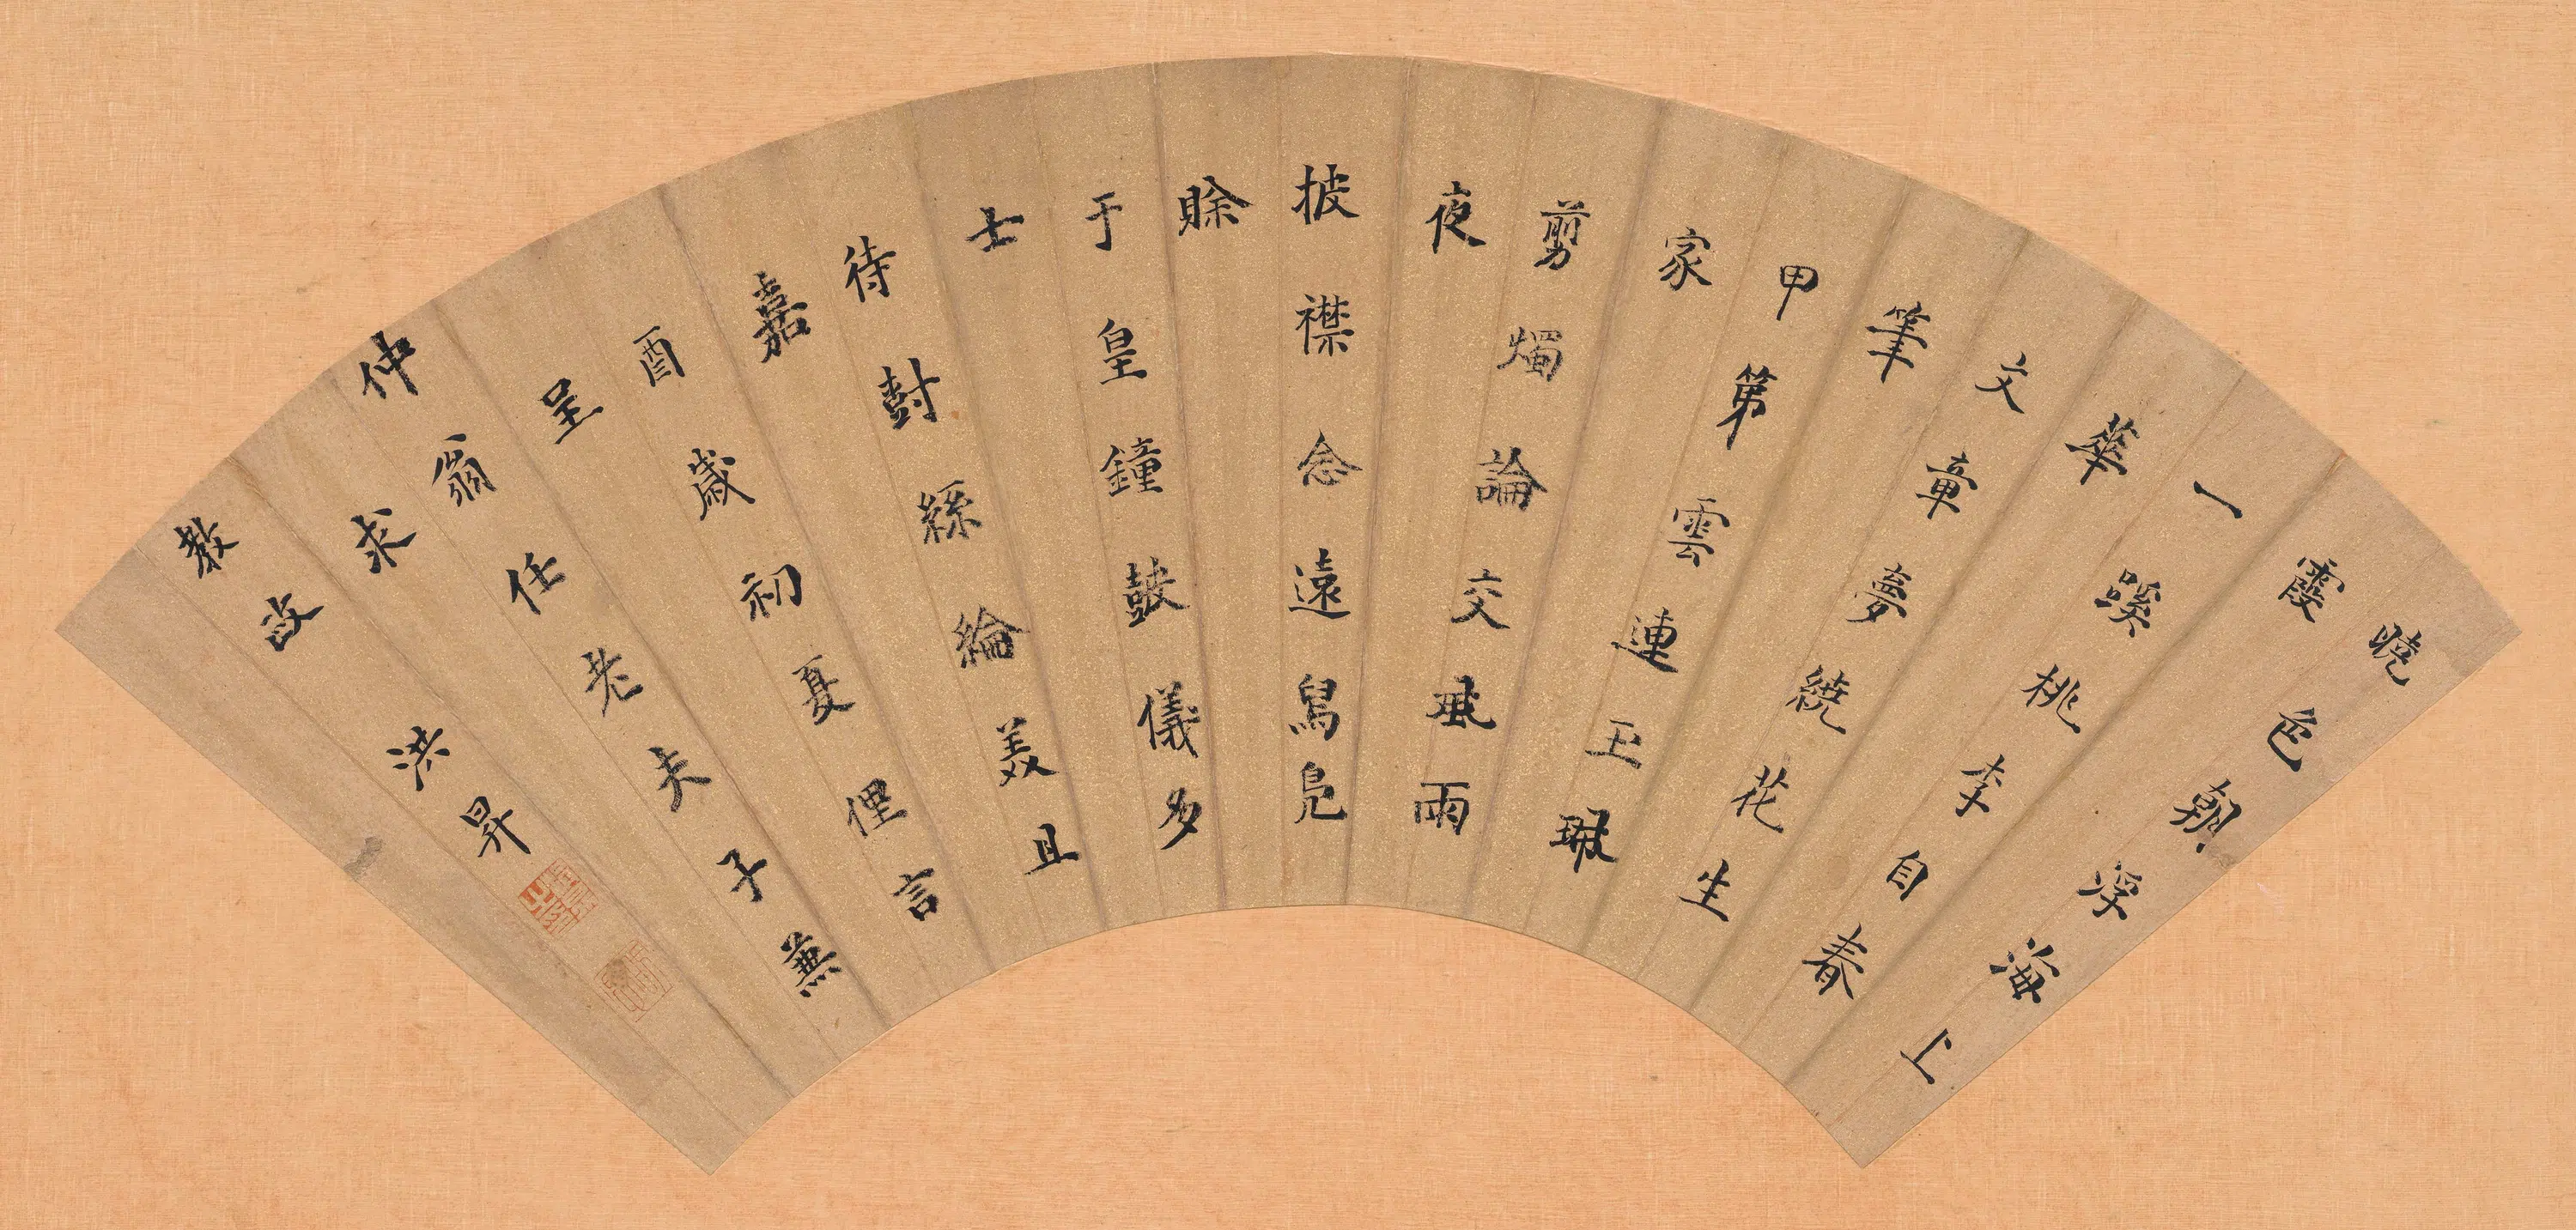 曉色朝浮海上
霞
一蹊桃李自春
華
文章夢繞花生
筆
甲第雲連玉珮
家
剪燭論交風雨
夜
披襟念遠舄鳧
賒
于皇鐘鼓儀多
士
待對絲綸美且
嘉
酉歲初夏俚言
呈
仲翁任老夫子兼
求
教政 洪昇